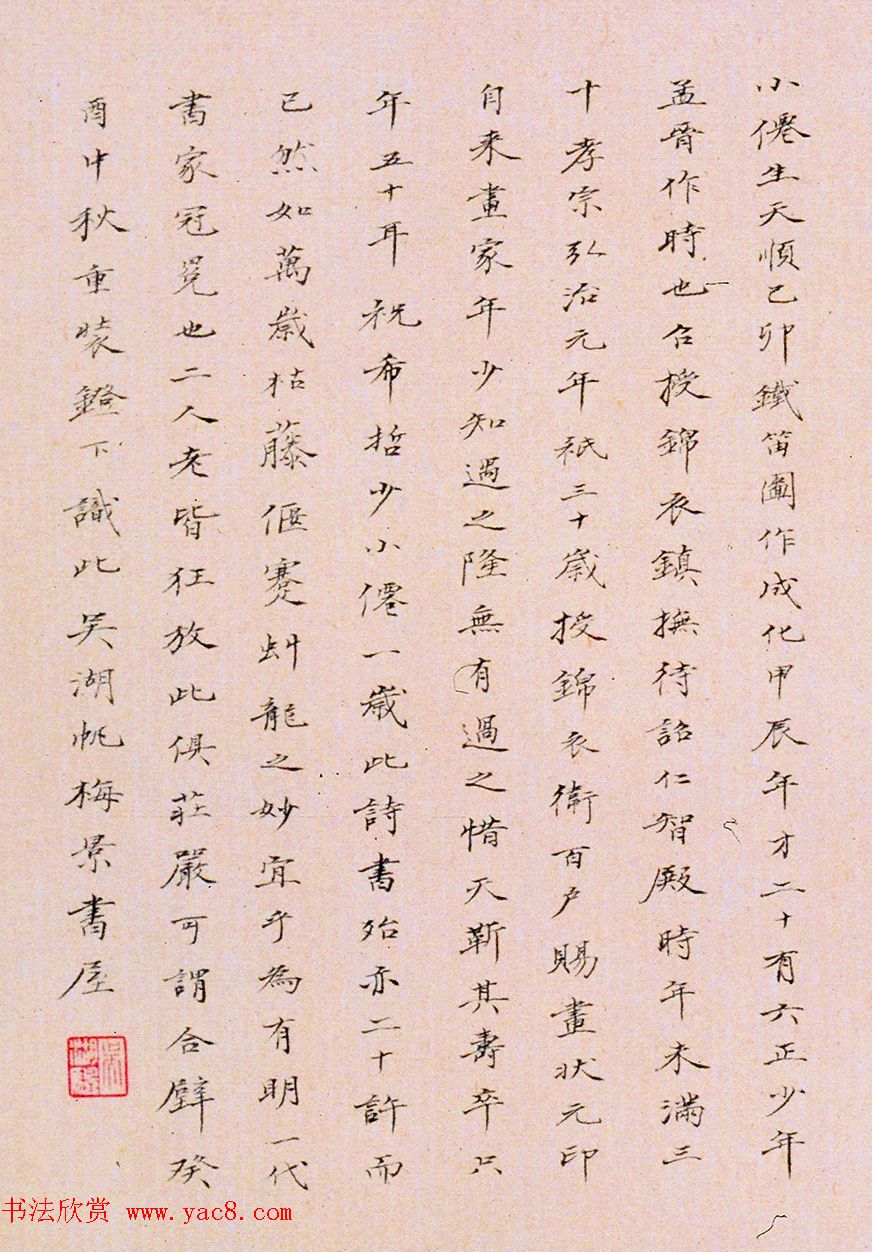 小僊生天順己卯鐵笛圖作成化甲辰年才二十有六正少年
孟晉作時也召授錦衣鎮撫待詔仁智殿時年未滿三
十孝宗弘治元年祇三十歲授錦衣衛百戶賜畫狀元印
自来畫家年少知遇之隆無有過之惜天靳其壽卒只
年五十耳祝希哲少小僊一歲此詩書殆亦二十許而
已然如萬歲枯藤偃蹇虯龍之妙宜乎為有明一代
書家冠冕也二人老皆狂放此俱莊嚴可謂合璧癸
酉中秋重装鐙下識此吴湖帆梅景書屋
书法欣赏 www.yac8.com